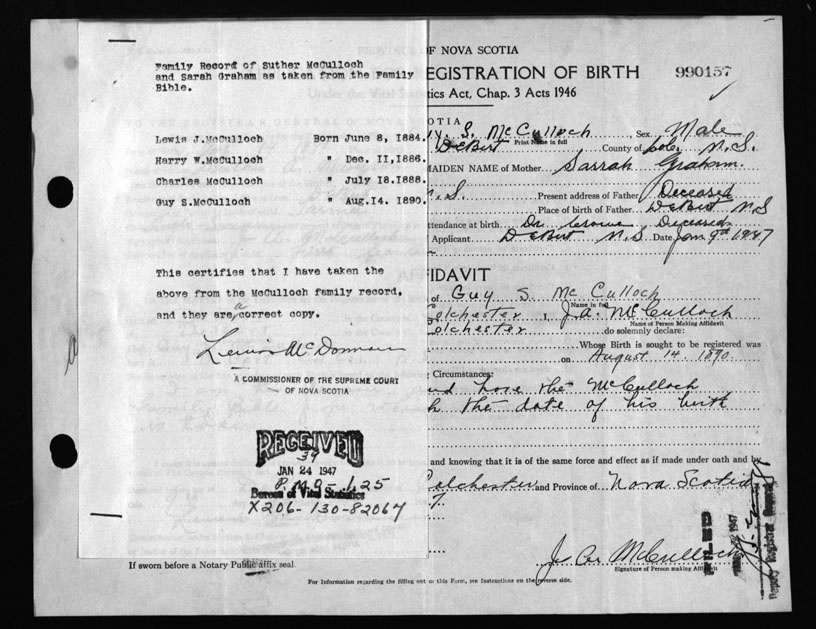 Family Record of Suther McCulloch
and Sarah Graham as taken from the Family
Bible.
Lewis J.McCulloch Born June 8, 1884.
Harry W.McCulloch " Dec. 11,1886.
Charles McCulloch " July 18.1888.
Guy S.McCulloch " Aug.14. 1890.
This certifies that I have taken the
above from the McCulloch family record,
and they are a correct copy.
A COMMISSIONER OF THE SUPREME COURT
OF NOVA SCOTIA
RECEIVED
39
JAN 24 1947
P.M.9- 1.25
Bureau of Vital Statistics
X206-130-82067
If sworn before a Notary Public affix seal.
OF NOVA SCOTIA
REGISTRATION OF BIRTH
990157
tics Act, Chap. 3 Acts 1946
SCOTIA
S. McCulloch Sex Male
Print Name in full
DeBert County of Col. N.S.
MAIDEN NAME of Mother Sarrah Graham.
N.S. Present address of Father Deceased
Place of birth of Father DeBert N.S
ttendance at birth. Dr. Deceased
Applicant DeBert N.S. Date Jan 9th 1947
FFIDAVIT
of Guy S. McCulloch
Name in full
olchester I, J.A. McCulloch
Name of Person Making Affidavit
olchester do solemnly declare:
Whose Birth is sought to be registered was
on August 14. 1890.
g Circumstances:
and have the McCulloch
h the date of his birth
and knowing that it is of the same force and effect as if made under oath and by
Colchester and Province of Nova Scotia
7.
McCulloch
Signature of Person making Affidavit
For Information regarding the filling out of this Form, see Instructions on the reverse side.
FILED
1947
Deputy Registrar General